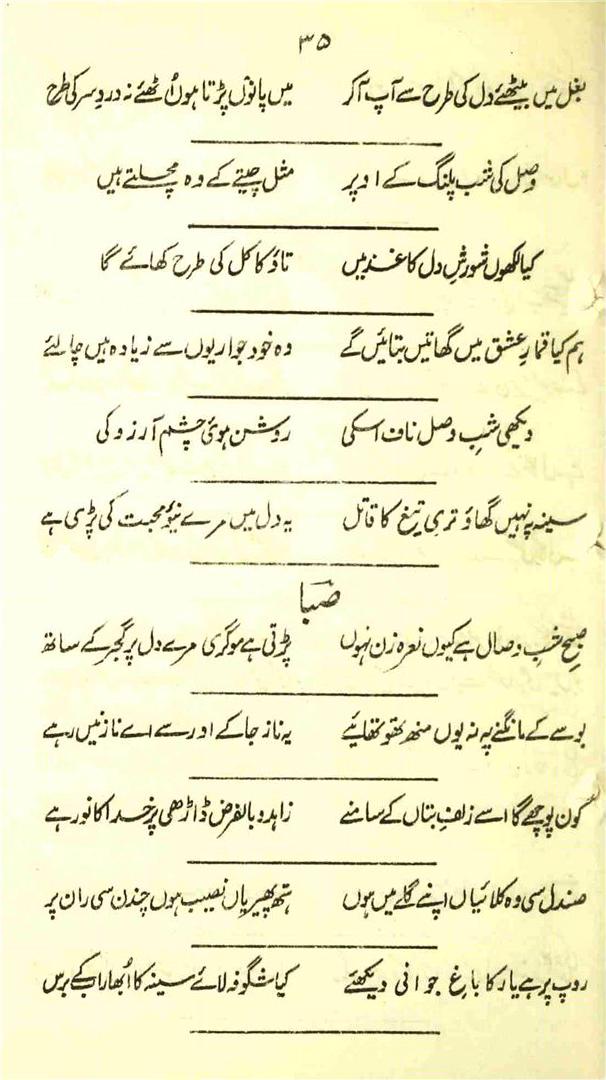 ۳۵
بغل میں بیٹھئے دل کی طرح سے آپ آ کر میں پانوں پڑتا ہوں اُٹھئے نہ دردِ سر کی طرح
وصل کی شب پلنگ کے اوپر مثل چیتے کے وہ مچلتے ہیں
کیا لکھوں شورشِ دل کاغذ میں تاؤ کاکل کی طرح کھائے گا
ہم کیا قمارِ عشق میں گھاتیں بتائیں گے وہ خود جواریوں سے زیادہ ہیں چالئے
دیکھی شبِ وصل ناف اسکی روشن ہوئی چشم آرزو کی
سینہ پہ نہیں گھاؤ تری تیغ کا قاتل یہ دل میں مرے نیو محبت کی پڑی ہے
صبا
صبح شبِ وصال ہے کیوں نعرہ زن نہوں پڑتی ہے موگری مرے دل پر گجر کے ساتھ
بوسے کے مانگنے پہ نہ یوں منھ تھوتھائیے یہ ناز جا کے اور سے اے نازنیں رہے
کون پوچھے گا اسے زلفِ بتاں کے سامنے زاہدو بالفرض ڈاڑھی پر خدا کا نور ہے
صندل سی وہ کلائیاں اپنے گلے میں ہوں ہتھ پھیریاں نصیب ہوں چندن سی ران پر
روپ پر ہے یار کا باغِ جوانی دیکھئے کیا شگوفہ لائے سینہ کا اُبھار ابکے برس